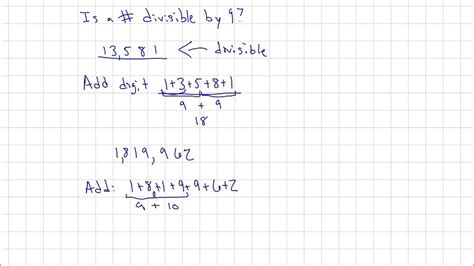 Is a # divisible by 9?
13,581 ← divisible
Add digit 1+3+5+8+1
9 + 9
18
1,819,962
Add: 1+8+1+9+9+6+2
9 + 10